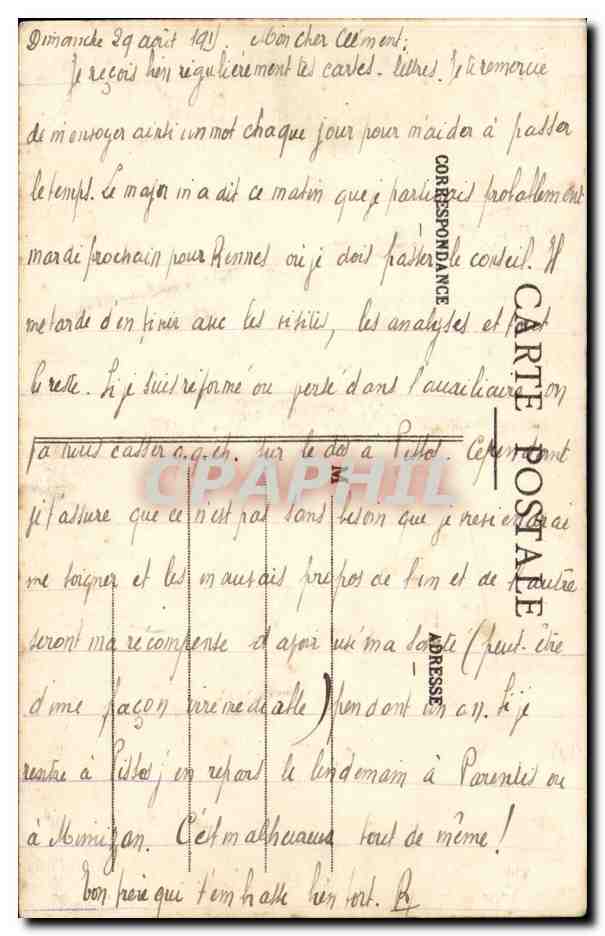 Dimanche 29 août 191 Mon cher Clément,
Je reçois bien régulièrement tes cartes-lettres. Je te remercie
de m'envoyer ainsi un mot chaque jour pour m'aider à passer
le temps. Le major m'a dit ce matin que je partirais probablement
mardi prochain pour Rennes où je dois passer le conseil. Il
me tarde d'en finir avec les visites, les analyses et tout
le reste. Si je suis réformé ou versé dans l'auxiliaire on
va nous casser q.q.ch. sur le dos à Pissos. Cependant
je t'assure que ce n'est pas sans besoin que je reviendrai
me soigner et les mauvais propos de l'un et de l'autre
seront ma récompense d'avoir usé ma santé (peut-être
d'une façon irrémédiable) pendant un an. Si je
rentre à Pissos, j'en repars le lendemain à Parentis ou
à Mimizan. C'est malheureux tout de même !
Ton frère qui t'embrasse bien fort. R
CORRESPONDANCE
CARTE POSTALE
ADRESSE
M
CPAPHIL